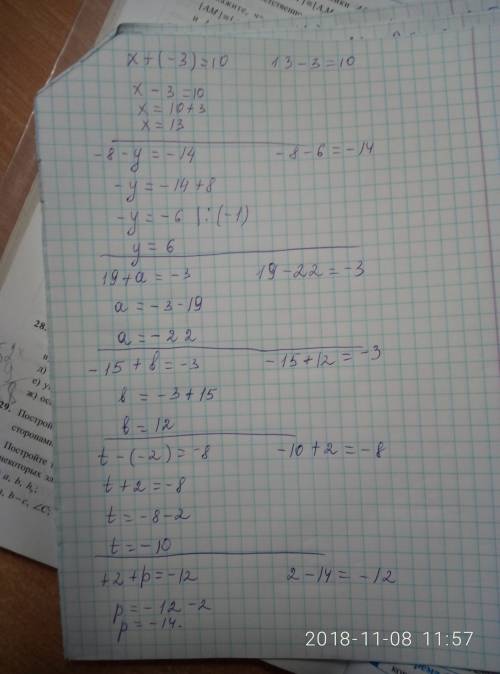 x+(-3)=10 13-3=10
x-3=10
x=10+3
x=13
-8-y=-14 -8-6=-14
-y=-14+8
-y=-6 |:(-1)
y=6
19+a=-3 19-22=-3
a=-3-19
a=-22
-15+b=-3 -15+12=-3
b=-3+15
b=12
t-(-2)=-8 -10+2=-8
t+2=-8
t=-8-2
t=-10
+2+p=-12 2-14=-12
p=-12-2
p=-14.
28.
д)
29. Построй
сторонами
Постройте
a, b, h
b-c, ∠C;
2018-11-08 11:57